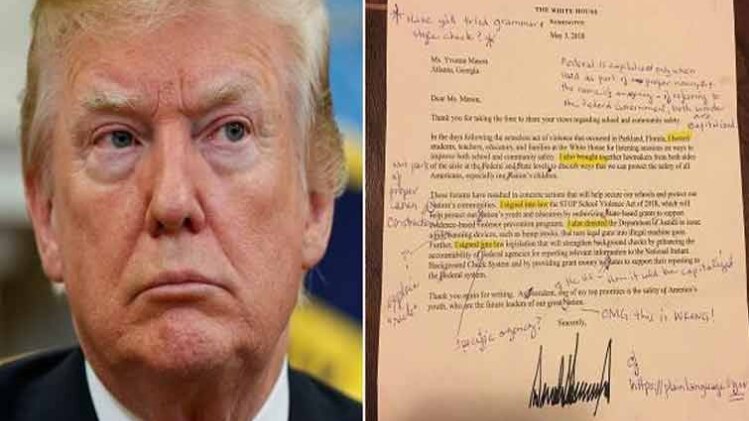 * Have y'all tried grammar &
style check? *
THE WHITE HOUSE
WASHINGTON
May 3, 2018
Ms. Yvonne Mason
Atlanta, Georgia
Federal is capitalized only when
used as part of a proper noun
the Federal Government, both words are
capitalized.
Dear Ms. Mason,
Thank you for taking the time to share your views regarding school and community safety.
In the days following the senseless act of violence that occurred in Parkland, Florida, I hosted
students, teachers, educators, and families at the White House for listening sessions on ways to
improve both school and community safety. I also brought together lawmakers from both sides
of the aisle at the Federal and State levels to discuss ways that we can protect the safety of all
Americans, especially our Nation's children.
not part
of
proper
noun
construction
These forums have resulted in concrete actions that will help secure our schools and protect our
Nation's communities. I signed into law the STOP School Violence Act of 2018, which will
help protect our Nation's youth and educators by authorizing State-based grants to support
evidence-based violence prevention programs. I also directed the Department of Justice to issue
a rule banning devices, such as bump stocks, that turn legal guns into illegal machine guns.
Further, I signed into law legislation that will strengthen background checks by enhancing the
accountability of Federal agencies for reporting relevant information to the National Instant
Background Check System and by providing grant money to States to support their reporting to
the Federal system.
Thank you again for writing. As President, one of my top priorities is the safety of America's
youth, who are the future leaders of our great Nation.
OMG this is WRONG!
Sincerely,
specific agency?
https://plainlanguage.gov